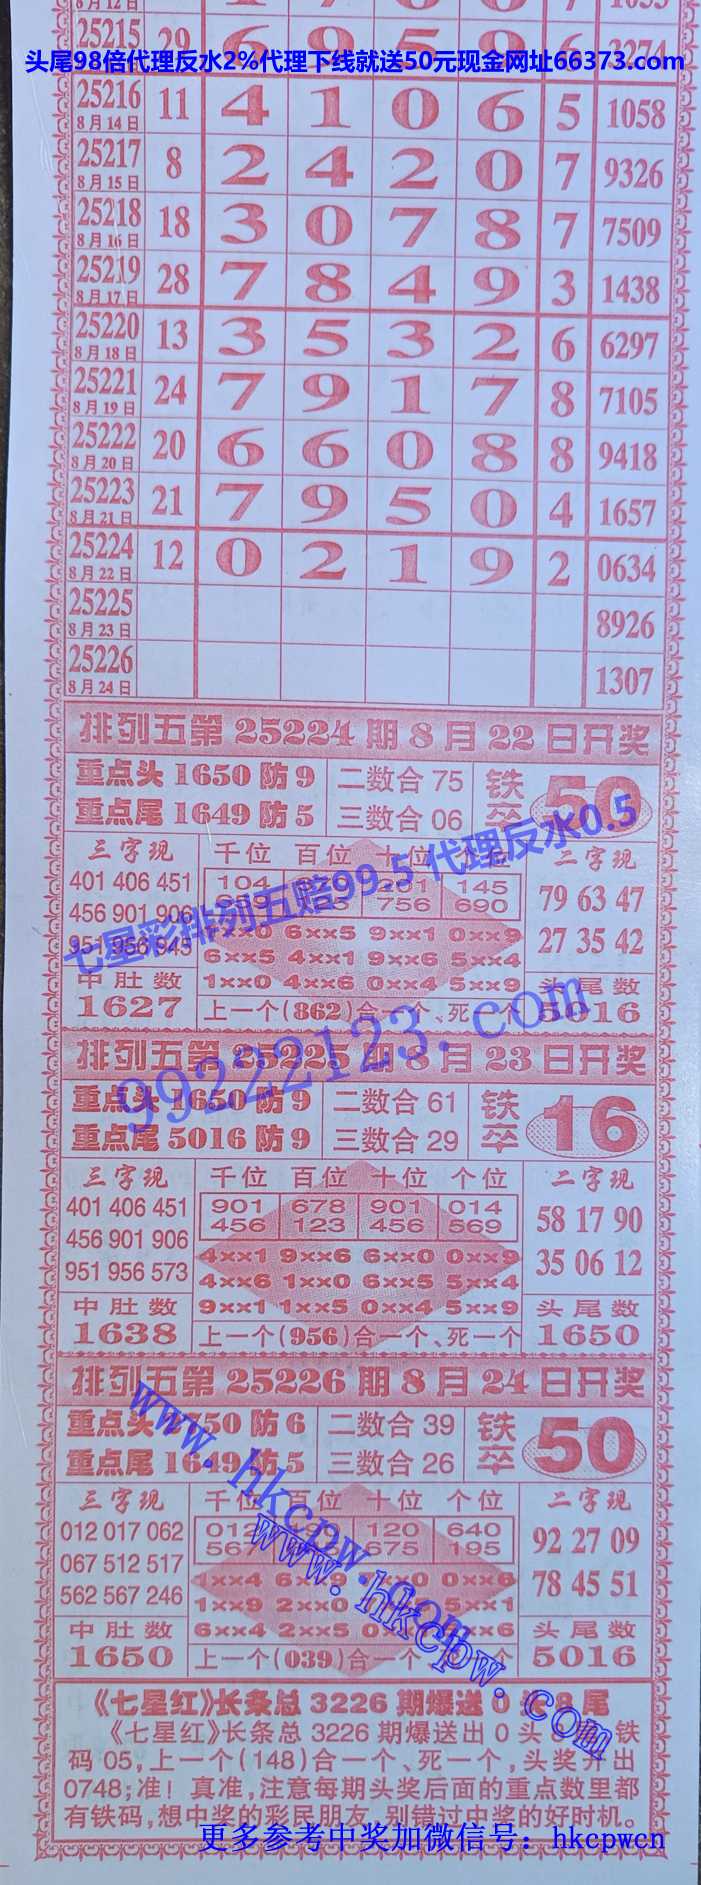 8月12日
25215 29 6 9 5 9 6 2274
头尾98倍代理反水2%代理下线就送50元现金网址66373.com
25216 11 4 1 0 6 5 1058
8月14日
25217 8 2 4 2 0 7 9326
8月15日
25218 18 3 0 7 8 7 7509
8月16日
25219 28 7 8 4 9 3 1438
8月17日
25220 13 3 5 3 2 6 6297
8月18日
25221 24 7 9 1 7 8 7105
8月19日
25222 20 6 6 0 8 8 9418
8月20日
25223 21 7 9 5 0 4 1657
8月21日
25224 12 0 2 1 9 2 0634
8月22日
25225 8926
8月23日
25226 1307
8月24日
排列五第25224期8月22日开奖
重点头1650防9 二数合75 铁卒 50
重点尾1649防5 三数合06
三字现 千位 百位 十位 个位 二字现
401 406 451 104 145 79 63 47
456 901 906 756 690
951 956 945 6××5 9××1 0××9 27 35 42
6××5 4××1 9××6 5××4
中肚数 1××0 4××6 0××4 5××9 头尾数
1627 上一个(862)合一个、死一个 5016
七星彩排列五赔99.5 代理反水0.5
排列五第25225期8月23日开奖
99222123.com
重点头1650防9 二数合61 铁卒 16
重点尾5016防9 三数合29
三字现 千位 百位 十位 个位 二字现
401 406 451 901 678 901 014 58 17 90
456 901 906 456 123 456 569
951 956 573 4××1 9××6 6××0 0××9 35 06 12
4××6 1××0 6××5 5××4
中肚数 9××1 1××5 0××4 5××9 头尾数
1638 上一个(956)合一个、死一个 1650
排列五第25226期8月24日开奖
重点头 750防6 二数合39 铁卒 50
重点尾1649防5 三数合26
三字现 千位 百位 十位 个位 二字现
012 017 062 012 120 640 92 27 09
067 512 517 567 675 195
562 567 246 1××4 78 45 51
1××9 2××0 5××1
中肚数 6××4 2××5 头尾数
1650 上一个(039)合一个 5016
www.hkcpw.com
www.hkcpw.com
《七星红》长条总3226期爆送0头8尾
《七星红》长条总3226期爆送出0头 铁
码05,上一个(148)合一个、死一个,头奖开出
0748;准！真准,注意每期头奖后面的重点数里都
有铁码,想中奖的彩民朋友,别错过中奖的好时机。
更多参考中奖加微信号：hkcpwcn